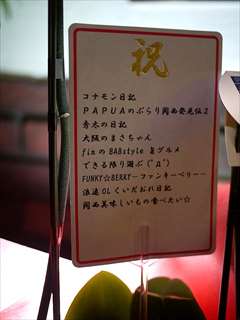 祝
コナモン日記
PAPUAのぶらり関西発見伝2
秀木の日記
大阪のまさちゃん
finのBABstyle 食グルメ
できる限り遊ぶ(ﾟДﾟ)
FUNKY☆BERRY－ファンキーベリー－
浪速OLくいだおれ日記
関西美味しいもの食べたい☆